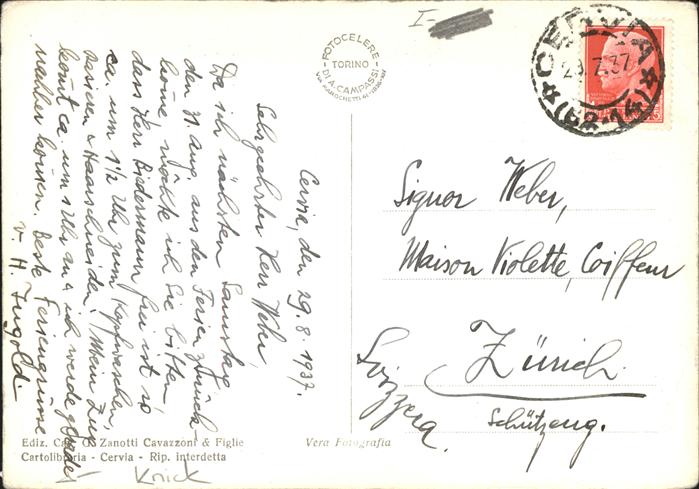 Cervia, den 29.8.1937.
Sehr geehrter Herr Weber,
Da ich nächsten Samstag
den 31. Aug. aus den Ferien zurück
komme möchte ich Sie bitten,
dass Herr Biedermann frei ist so
ca. um 1½ Uhr zum Kopfwaschen,
rasieren & Haarschneiden. Mein Zug
kommt ca. um 1 Uhr an & ich werde
nachher kommen. Beste Feriengrüsse
v. H. Ingold
I-
FOTOCELERE
TORINO
DI A. CAMPASSI
CERVIA
29.7.37
Signor Weber,
Maison Violette, Coiffeur
Zürich.
Schützeng.
Svizzera.
Ediz. Zanotti Cavazzoni & Figlie
Cartolibreria - Cervia - Rip. interdetta
Vera Fotografia
Knick